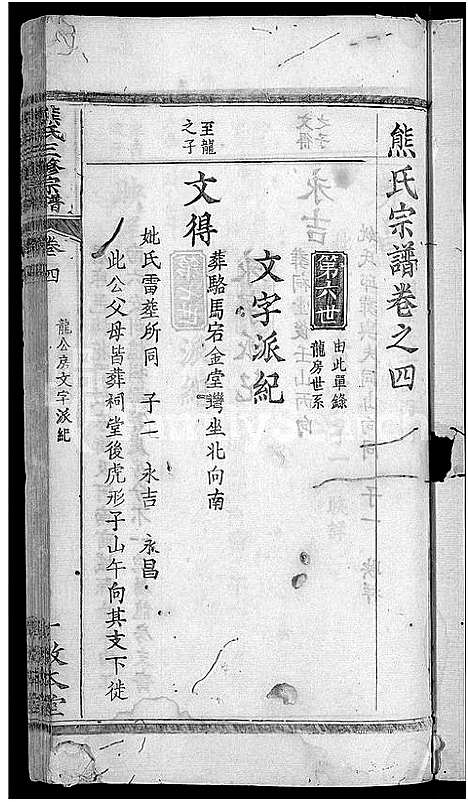 熊氏宗譜卷之四
第六世
由此單錄
龍房世系
文字派紀
至龍
之子
文得
葬駱馬宕金堂灣坐北向南
妣氏雷葬所同 子二 永吉 永昌
此公父母皆葬祠堂後虎形子山午向其支下徙
熊氏三修宗譜
卷四
龍公房文字派紀
一